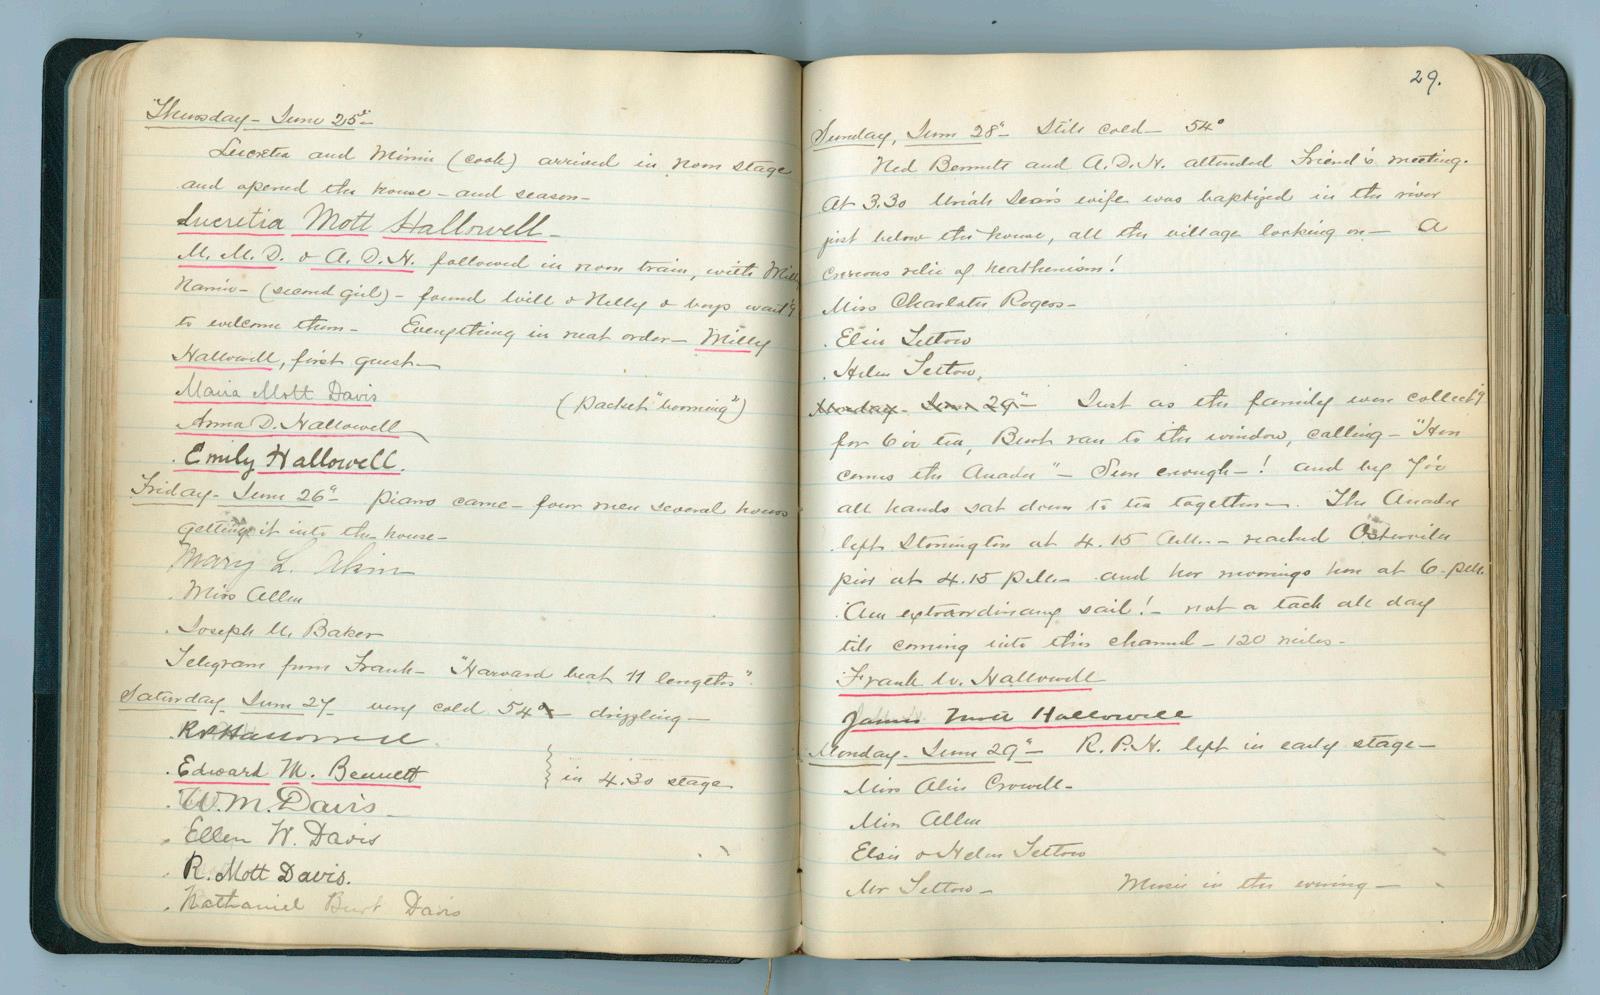 Thursday - June 25"
Lucretia and Minnie (cook) arrived in noon stage
and opened the house - and season -
Lucretia Mott Hallowell -
M. M. D. & A. D. H. followed in noon train, with Milly
Nannie - (second girl) - found Will & Nelly & boys wait'g
to welcome them - Everything in neat order - Milly
Hallowell, first guest -
Maria Mott Davis
(packet "booming")
Anna D. Hallowell
Emily Hallowell.
Friday - June 26" piano came - four men several hours
getting it into the house -
Mary L. Akin
Miss Allen
Joseph W. Baker
Telegram from Frank - "Harvard beat 11 lengths".
Saturday June 27 very cold 54° - drizzling -
R P Hallowell
Edward M. Bennett } in 4.30 stage
W. M. Davis -
Ellen W. Davis
R. Mott Davis.
Nathaniel Burt Davis
29.
Sunday, June 28" - Still cold - 54°
Ned Bennett and A. D. H. attended Friend's meeting.
At 3.30 Uriah Sears wife was baptized in the river
just below the house, all the village looking on - A
curious relic of heathenism!
Miss Charlotte Rogers -
Elsie Tetlow
Helen Tetlow,
Monday - June 29" - Just as the family were collect'g
for 6 o'c tea, Burt ran to the window, calling - "Here
comes the" - Sure enough - ! and by 7 o'c
all hands sat down to tea together -. The
left Stonington at 4.15 A.M. - reached Osterville
pier at 4.15 P.M. - and her moorings here at 6. P.M.
An extraordinary sail! - not a tack all day
till coming into this channel - 120 miles -
Frank W. Hallowell
James Mott Hallowell
Monday - June 29" - R. P. H. left in early stage -
Miss Alice Crowell -
Miss Allen
Elsie & Helen Tetlow
Mr Tetlow - Music in the evening -